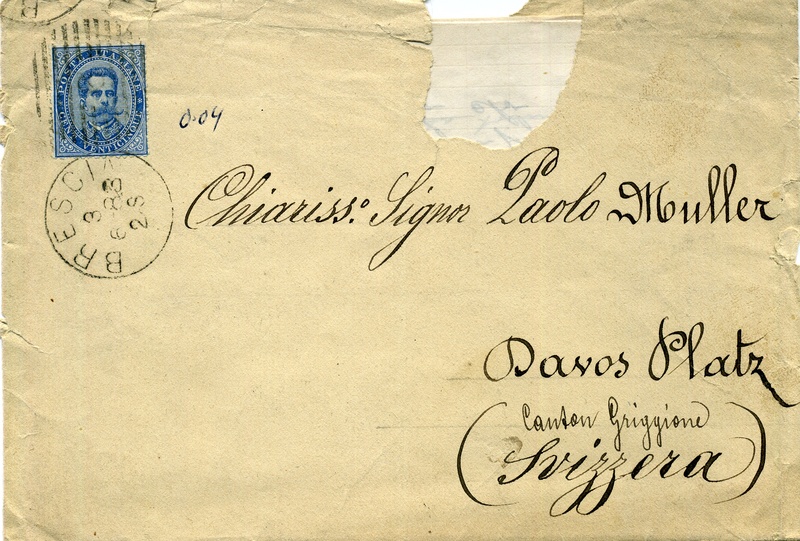 POSTE ITALIANE
CENT. VENTICINQUE
0.04
BRESCIA
3
6 88
2S
Chiariss.o Signor Paolo Muller
Davos Platz
(Canton Griggione
Svizzera)